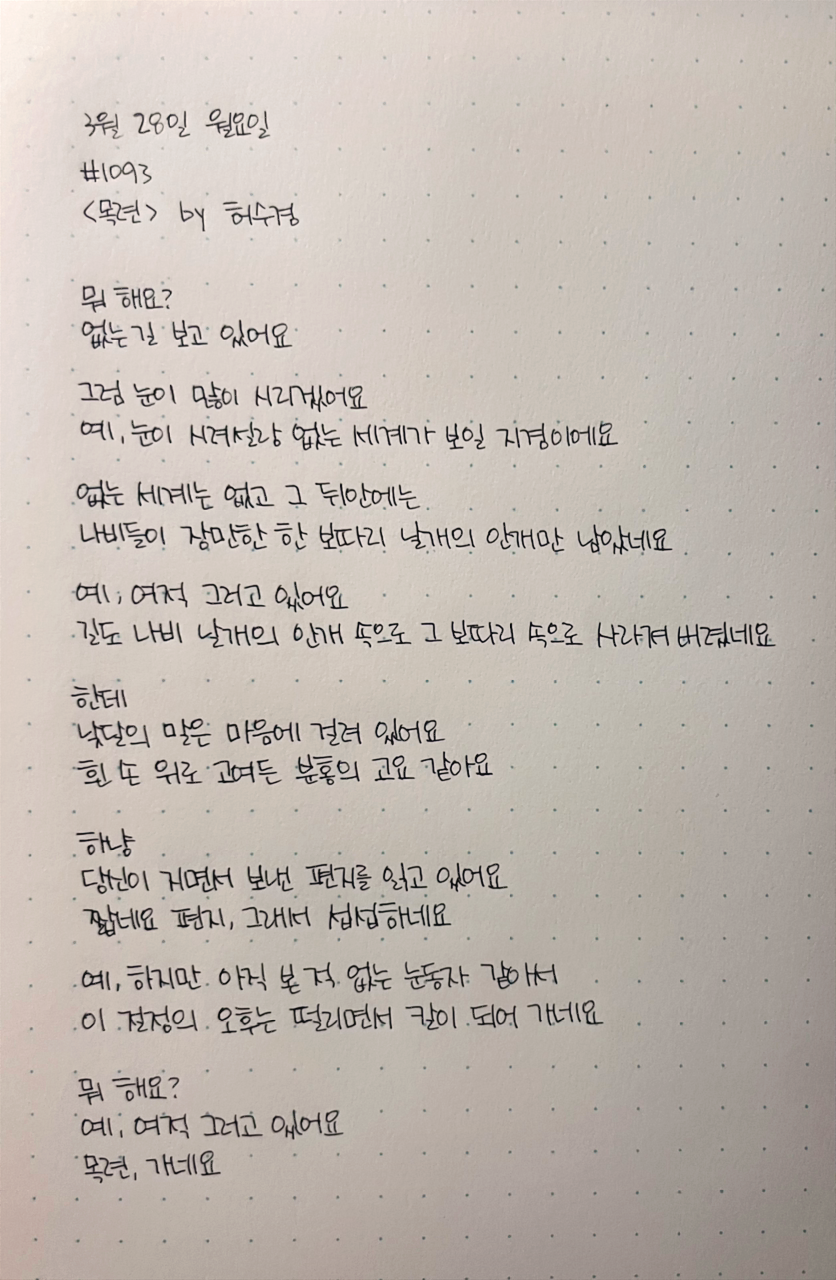 3월 28일 월요일
#1093
<목련> by 허수경
뭐 해요?
없는 길 보고 있어요
그럼 눈이 많이 시리겠어요
예, 눈이 시려설랑 없는 세계가 보일 지경이에요
없는 세계는 없고 그 뒤안에는
나비들이 장만한 한 보따리 날개의 안개만 남았네요
예, 여적 그러고 있어요
길도 나비 날개의 안개 속으로 그 보따리 속으로 사라져 버렸네요
한데
낮달의 말은 마음에 걸려 있어요
흰 손 위로 고여든 분홍의 고요 같아요
하냥
당신이 지면서 보낸 편지를 읽고 있어요
짧네요 편지, 그래서 섭섭하네요
예, 하지만 아직 본 적 없는 눈동자 같아서
이 절정의 오후는 떨리면서 칼이 되어 가네요
뭐 해요?
예, 여적 그러고 있어요
목련, 가네요